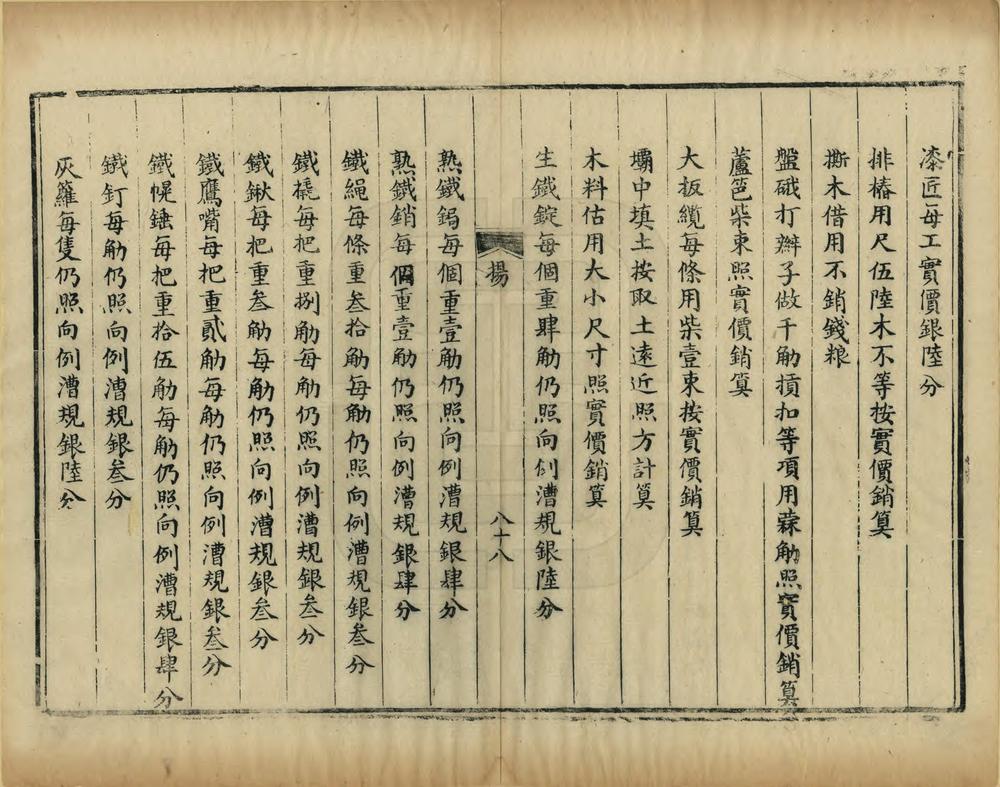 漆匠每工實價銀陸分
排樁用尺伍陸木不等按實價銷算
撕木借用不銷錢粮
盤硪打辮子做千觔摃扣等項用蔴觔照實價銷算
蘆笆柴束照實價銷算
大扳纜每條用柴壹束按實價銷算
壩中填土按取土遠近照方計算
木料估用大小尺寸照實價銷算
生鐵錠每個重肆觔仍照向例漕規銀陸分
揚
八十八
熟鐵鍋每個重壹觔仍照向例漕規銀肆分
熟鐵銷每個重壹觔仍照向例漕規銀肆分
鐵繩每條重叁拾觔每觔仍照向例漕規銀叁分
鐵橇每把重捌觔每觔仍照向例漕規銀叁分
鐵鍬每把重叁觔每觔仍照向例漕規銀叁分
鐵鷹嘴每把重貳觔每觔仍照向例漕規銀叁分
鐵幌錘每把重拾伍觔每觔仍照向例漕規銀肆分
鐵釘每觔仍照向例漕規銀叁分
灰籮每隻仍照向例漕規銀陸分